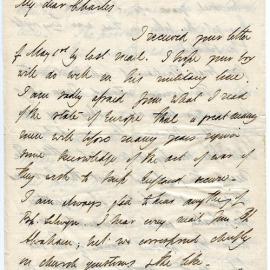 My dear Charles
I received your letter
of May 6th by last mail. I hope your boy
will do well in his military line.
I am sadly afraid from what I read
of the state of Europe that a great many
men will before many years require
some knowledge of the art of war if
they wish to keep England secure.
I am always glad to hear anything of
Bp. Selwyn. I hear every mail from Bp
Abraham; but we correspond chiefly
on church questions & the like.